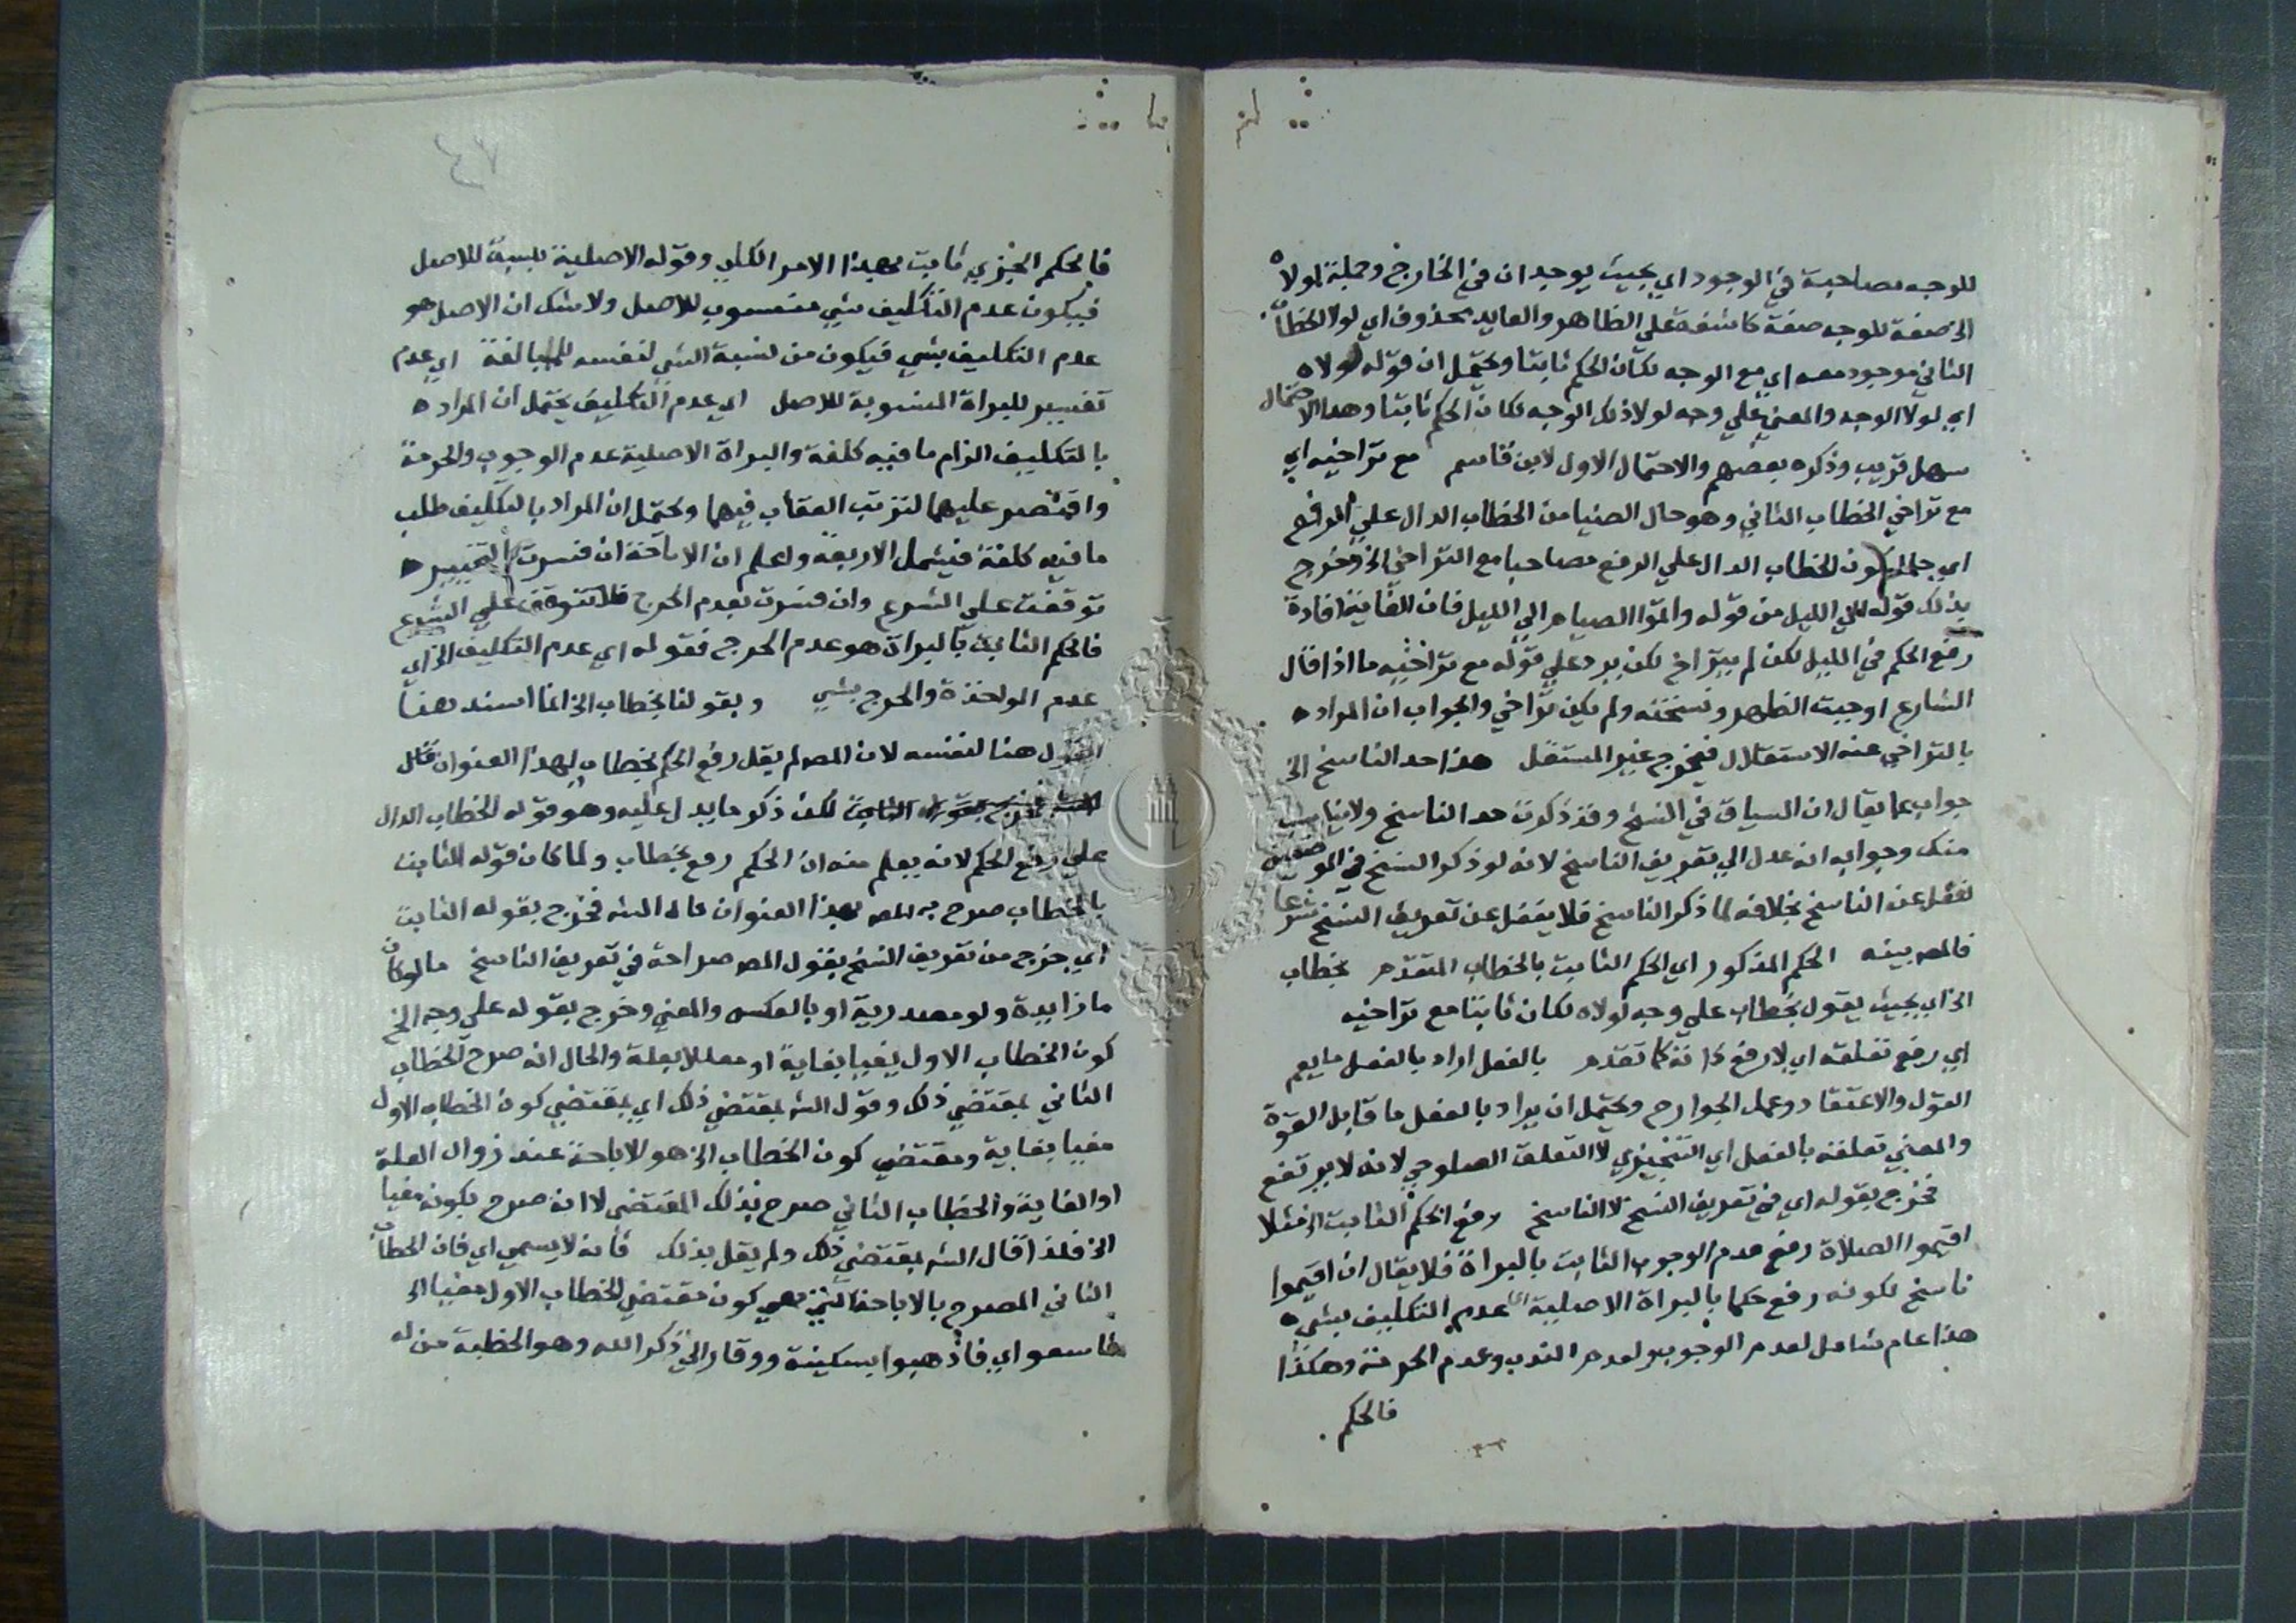 للوجه مصاحبة في الوجود اي بحيث يوجدان في الخارج وجملة لولاه
الخ صفة للوجه صفة كاشفة على الظاهر والعايد محذوف اي لولا الخطاب
الثاني موجود معه اي مع الوجه لكان الحكم ثابتا ويحتمل ان قوله لولاه
اي لولا الوجه والمعني علي وجه لولا ذلك الوجه لكان الحكم ثابتا وهذا الاحتمال
سهل قريب وذكره بعضهم والاحتمال الاول لابن قاسم مع تراخيه اي
مع تراخي الخطاب الثاني وهو حال ايضا من الخطاب الدال علي الرفع
اي حال كون الخطاب الدال علي الرفع مصاحبا مع التراخي الخ وخرج
بذلك قوله الي الليل من قوله واتموا الصيام الي الليل فان الغاية افادة
رفع الحكم في الليل لكن لم يتراخ لكن يرد علي قوله مع تراخيه ما اذا قال
الشارع اوجبت الظهر ونسخته ولم يكن تراخي والجواب ان المراد
بالتراخي عنه الاستقلال فيخرج غير المستقل هذا حد الناسخ الخ
جواب عما يقال ان السياق في النسخ وقد ذكرت حد الناسخ ولا يناسب
منك وجوابه انه عدل الي تعريف الناسخ لانه لو ذكر النسخ في الموضعين
لغفل عن الناسخ بخلافه لما ذكر الناسخ فلا يغفل عن تعريف النسخ شرعا
فالمص بينه الحكم المذكور اي الحكم الثابت بالخطاب المتقدم بخطاب
الخ اي بحيث يقول بخطاب علي وجه لولاه لكان ثابتا مع تراخيه
اي رفع تعلقه اي لا رفع ذاته كما تقدم بالفعل اراد بالفعل ما يعم
القول والاعتقاد وعمل الجوارح ويحتمل ان يراد بالفعل ما قابل القوة
والمعني تعلقه بالفعل اي التنجيزي لا التعلق الصلوحي لانه لا يرتفع
فخرج بقوله اي في تعريف النسخ لا الناسخ رفع الحكم الثابت الخ فمثلا
اقيموا الصلاة رفع عدم الوجوب الثابت بالبراة فلا يقال ان اقيموا
ناسخ لكونه رفع حكما بالبراة الاصلية اي عدم التكليف بشي
هذا عام شامل لعدم الوجوب ولعدم الندب وعدم الحرمة وهكذا
فالحكم
فالحكم الجزي ثابت بهذا الامر الكلي وقوله الاصلية نسبة للاصل
فيكون عدم التكليف شي منسوب للاصل ولا شك ان الاصل هو
عدم التكليف بشي فيكون من نسبة الشي لنفسه للمبالغة اي عدم
تفسير للبراة المنسوبة للاصل اي عدم التكليف يحتمل ان المراد
بالتكليف الزام ما فيه كلفة والبراة الاصلية عدم الوجوب والحرمة
واقتصر عليهما لترتب العقاب فيهما ويحتمل ان المراد بالتكليف طلب
ما فيه كلفة فيشمل الاربعة واعلم ان الاباحة ان فسرت بالتخيير
توقفت علي الشرع وان فسرت بعدم الحرج فلا تتوقف علي الشرع
فالحكم الثابت بالبراة هو عدم الحرج فقوله اي عدم التكليف الخ اي
عدم المواخذة والحرج بشي وبقولنا بخطاب الخ انما اسند هذا
القول هنا لنفسه لان المص لم يقل رفع الحكم بخطاب بهذا العنوان
لكن ذكر ما يدل عليه وهو قوله الخطاب الدال
علي رفع الحكم لانه يعلم منه ان الحكم رفع بخطاب ولما كان قوله الثابت
بالخطاب صرح به المص بهذا العنوان قال الش فخرج بقوله الثابت
اي خرج من تعريف النسخ بقول المص صراحة في تعريف الناسخ ما لو كان
ما زايدة ولو مصدرية او بالعكس والمعني وخرج بقوله علي وجه الخ
كون الخطاب الاول مغيا بغاية او معللا بعلة والحال انه صرح الخطاب
الثاني بمقتضي ذلك وقول الش بمقتضي ذلك اي بمقتضي كون الخطاب الاول
مغيا بغاية ومقتضي كون الخطاب الخ هو الاباحة عند زوال العلة
او الغاية والخطاب الثاني صرح بذلك المقتضي لا انه صرح بكونه مغيا
الخ فلذا قال الش بمقتضي ذلك ولم يقل بذلك فانه لا يسمي اي فان الخطاب
الثاني المصرح بالاباحة التي هي كون مقتضي الخطاب الاول مغيا الخ
فاسعوا اي فاذهبوا بسكينة ووقار الي ذكر الله وهو الخطبة من له